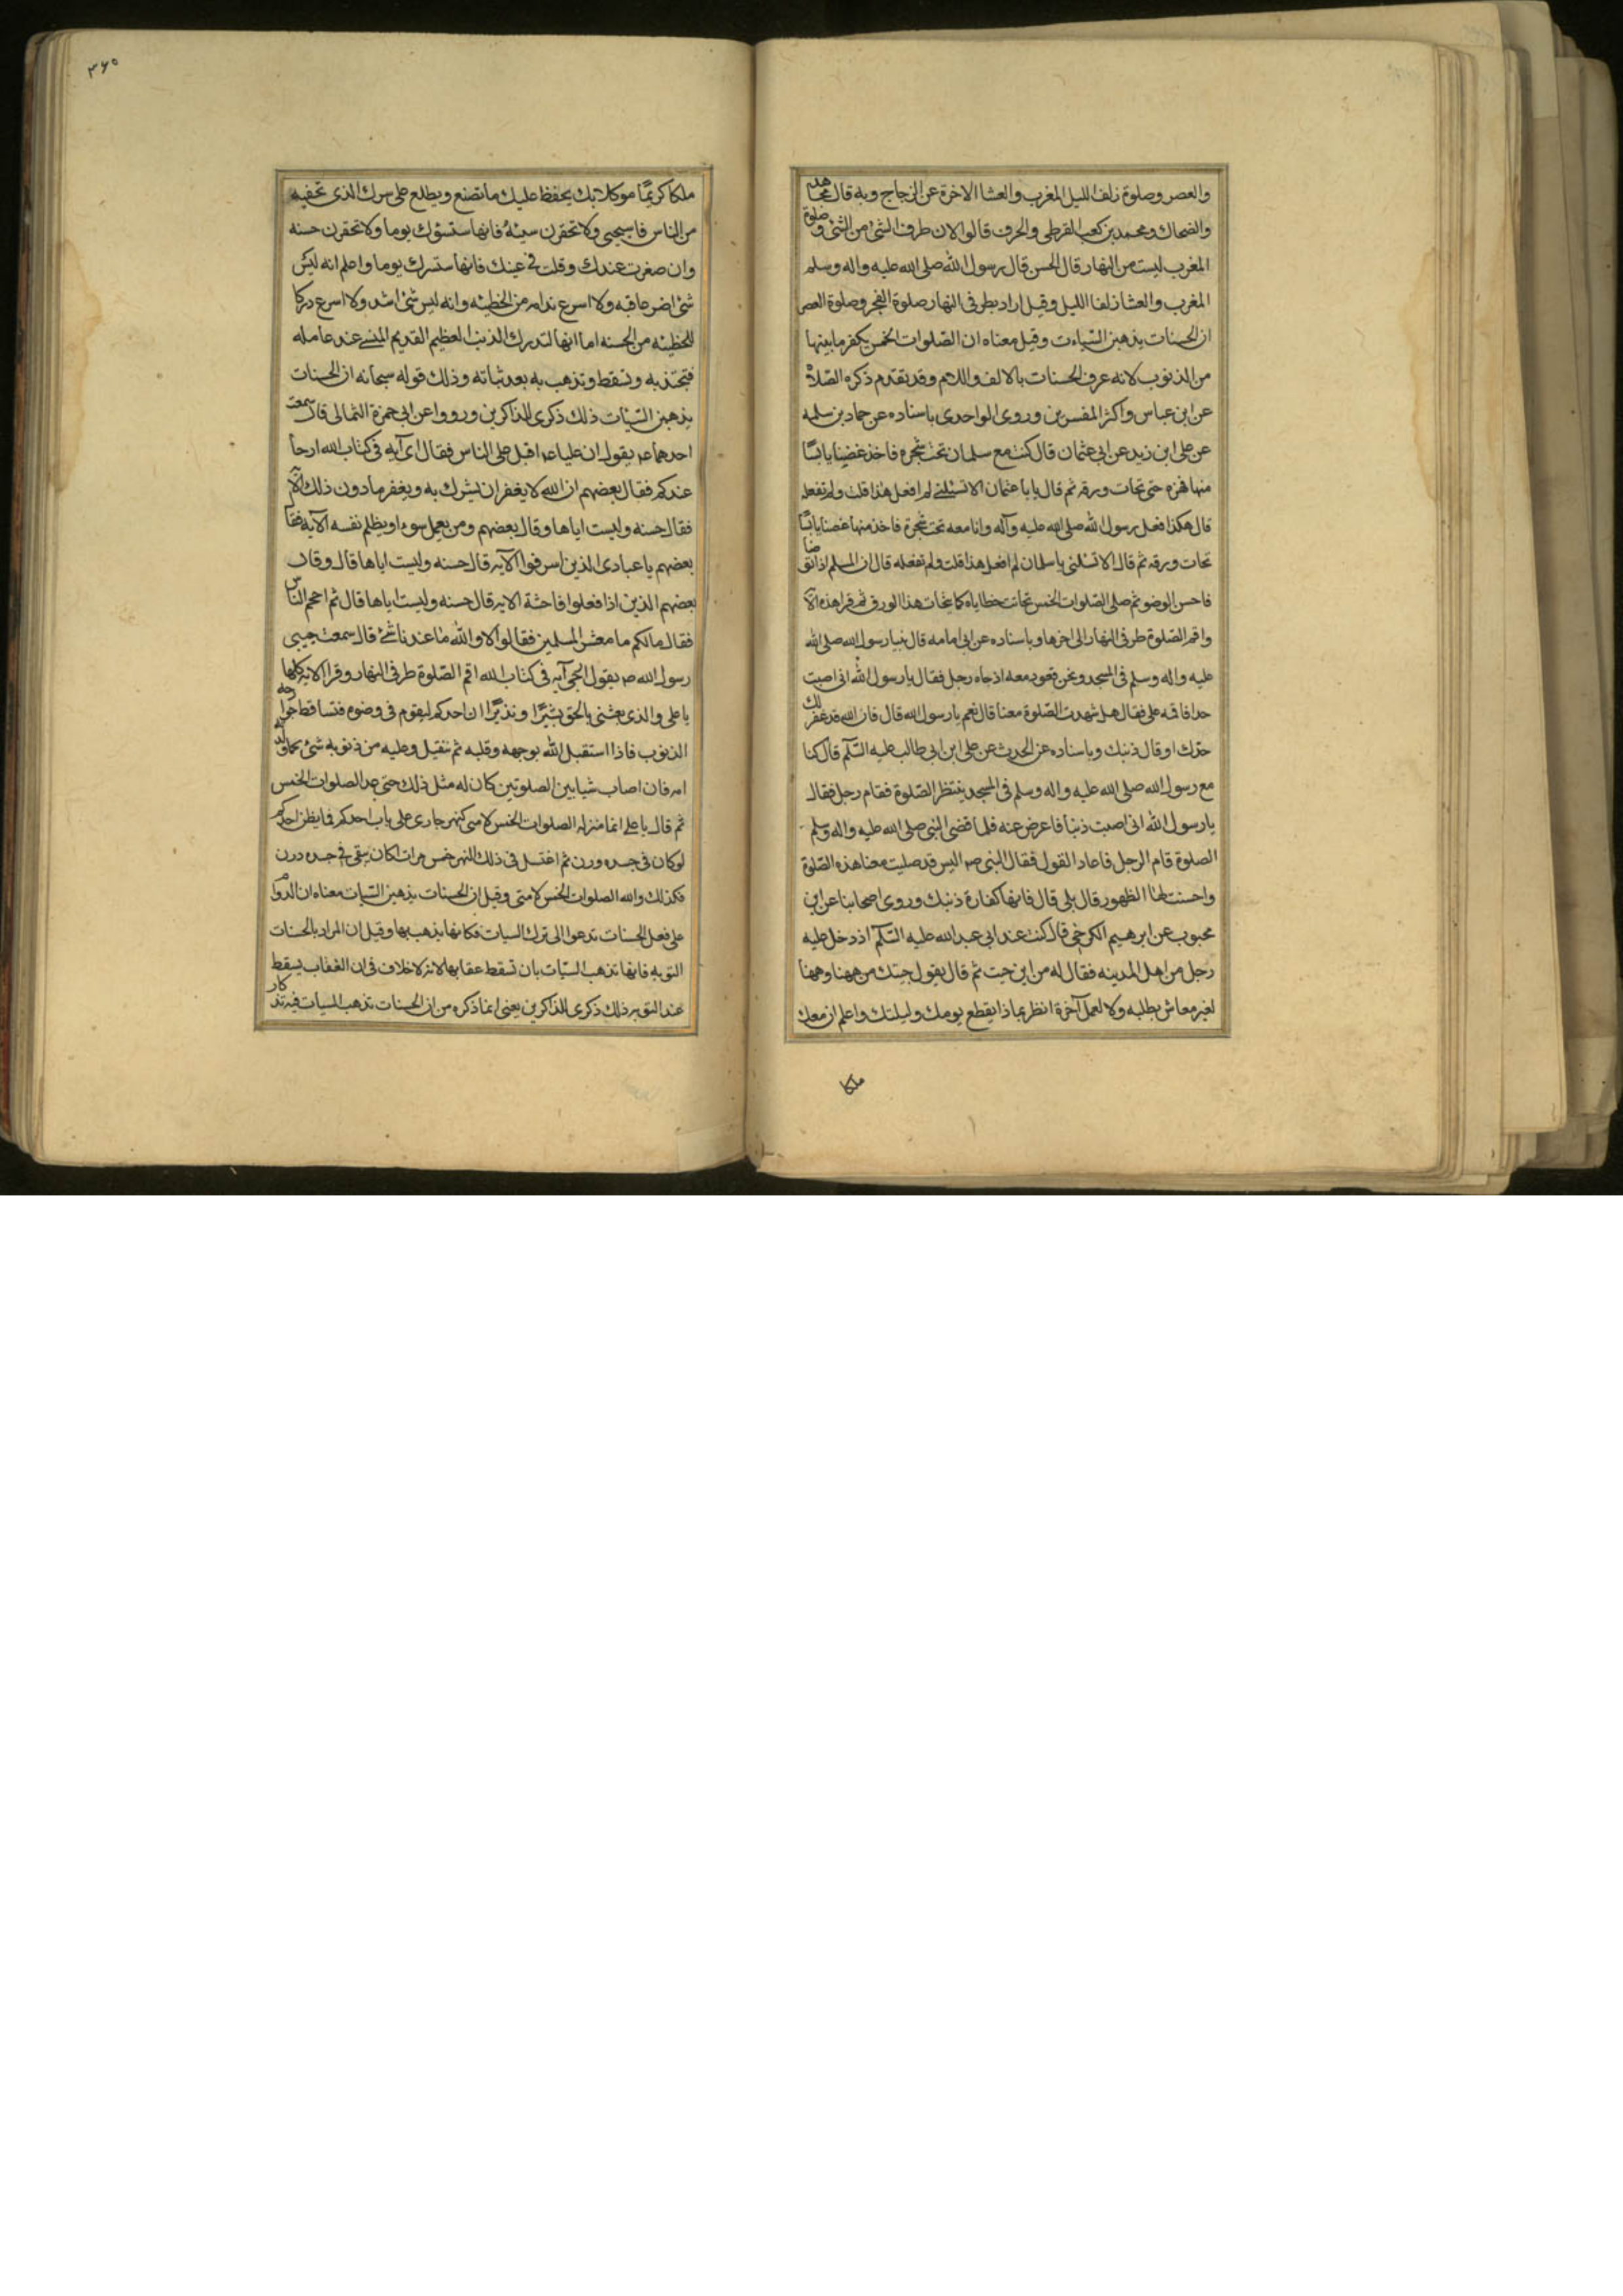 والعصر وصلوة زلف الليل المغرب والعشا الاخرة عن الزجاج وبه قال مجاهد
والضحاك ومحمد بن كعب القرطى والحرف قالوا لان طرف الشئ من الشئ وصلوة
المغرب ليست من النهار قال الحسن قال رسول الله صلى الله عليه واله وسلم
المغرب والعشا زلفا الليل وقيل اراد بطرفى النهار صلوة الفجر وصلوة العصر
ان الحسنات يذهبن السياءت وقيل معناه ان الصلوات الخمس يكفر ما بينها
من الذنوب لانه عرف الحسنات بالالف واللام وقد تقدم ذكره الصلاة
عن ابن عباس واكثر المفسرين وروى الواحدى باسناده عن حماد بن سلمه
عن على ابن زيد عن ابى عثمان قال كنت مع سلمان تحت شجرة فاخذ غضنا يابسا
منها فهزه حتى تحات ورقه ثم قال يا با عثمان الا تسئلنى لم افعل هذا قلت ولم تفعله
قال هكذا فعل رسول الله صلى الله عليه وآله وانا معه تحت شجرة فاخذ منها غصنا يابسا
تحات ورقه ثم قال الا تسئلنى يا سلمان لم افعل هذا قلت ولم تفعله قال ان المسلم اذا توضا
فاحسن الوضو ثم صلى الصلوات الخمس تحاتت خطاياه كما تحات هذا الورق ثم قرا هذه الآ
واقم الصلوة طرفى النهار الى اخرها وباسناده عن ابى امامه قال بينا رسول الله صلى الله
عليه واله وسلم فى المسجد ونحن قعود معه اذ جاه رجل فقال يا رسول الله انى اصبت
حدا فاقمه على فقال هل شهدت الصلوة معنا قال نعم يا رسول الله قال فان الله قد غفر لك
حدك او قال ذنبك وباسناده عن الحرث عن على ابن ابى طالب عليه السلم قال كنا
مع رسول الله صلى الله عليه واله وسلم فى المسجد ينتظر الصلوة فقام رجل فقال
يا رسول الله انى اصبت ذنبا فاعرض عنه فلما قضى النبى صلى الله عليه واله وسلم
الصلوة قام الرجل فاعاد القول فقال النبى صم اليس قد صليت معنا هذه الصلوة
واحسنت لها الظهور قال بلى قال فانها كفارة ذنبك وروى اصحابنا عن ابن
محبوب عن ابرهيم الكرخى قال كنت عند ابى عبد الله عليه السلم اذ دخل عليه
رجل من اهل المدينه فقال له من اين جيت ثم قال يقول جيتك من ههنا وههنا
لغير معاش يطلبه ولا لعمل آخرة انظر بما ذا يقطع يومك وليلتك واعلم ان معك
ملكا
٣٦٥
ملكا كريما موكلا بك يحفظ عليك ما تصنع ويطلع على سرك الذى تخفيه
من الناس فاسيحيى ولا تحقرن سيئه فانها ستسؤك يوما ولا تحقرن حسنه
وان صغرت عندك وقلت فى عينك فانها ستسرك يوما واعلم انه ليس
شئ اضر عاقبه ولا اسرع ندامه من الخطيئه وانه ليس شئ اشد ولا اسرع دركا
للخطيئه من الحسنه اما انها لتدرك الذنب العظيم القديم المنسى عند عامله
فتجذبه وتسقط وتذهب به بعد ثباته وذلك قوله سبحانه ان الحسنات
يذهبن السيئات ذلك ذكرى للذاكرين ورووا عن ابى حمزة الثمالى قال سمعت
احدهما عم يقول ان عليا عم اقبل على الناس فقال اى آيه فى كتاب الله ارجا
عندكم فقال بعضهم ان الله لا يغفر ان يشرك به ويغفر ما دون ذلك الآ
فقال حسنه وليست اياها وقال بعضهم ومن يعمل سوءا او يظلم نفسه الآيه فقا
بعضهم يا عبادى الذين اسرفوا الآيه قال حسنه وليست اياها قال وقال
بعضهم الذين اذا فعلوا فاحشة الايه قال حسنه وليست اياها قال ثم احجم الناس
فقال مالكم ما معشر المسلمين فقالوا لا والله ما عندنا شئ قال سمعت حبيبى
رسول الله صم يقول ارجى آيه فى كتاب الله اقم الصلوة طرفى النهار وقرا الايه كلها
يا على والذى بعثنى بالحق بشيرا ونذيرا ان احدكم ليقوم فى وضوه فتساقط جوارحه
الذنوب فاذا استقبل الله بوجهه وقلبه ثم ننقيل وعليه من ذنوبه شئ كما ولدته
امه فان اصاب شيا بين الصلوتين كان له مثل ذلك حتى عد الصلوات الخمس
ثم قال يا على انما منزله الصلوات الخمس لامتى كنهر جارى على باب احدكم فما يظن احدكم
لو كان فى جسده ورن ثم اغتسل فى ذلك النهر خمس مرات اكان يبقى فى جسده درن
فكذلك والله الصلوات الخمس لامتى وقيل ان الحسنات يذهبن السيات معناه ان الدوام
على فعل الحسنات تدعوا الى ترك السيات فكانها يذهب بها وقيل ان المراد بالحسنات
التوبه فانها تذهب السيات بان تسقط عقابها لانه لا خلاف فى ان العقاب يسقط
عند التوبه ذلك ذكرى للذاكرين يعنى انما ذكره من ان الحسنات تذهب السيات فيه تذكار